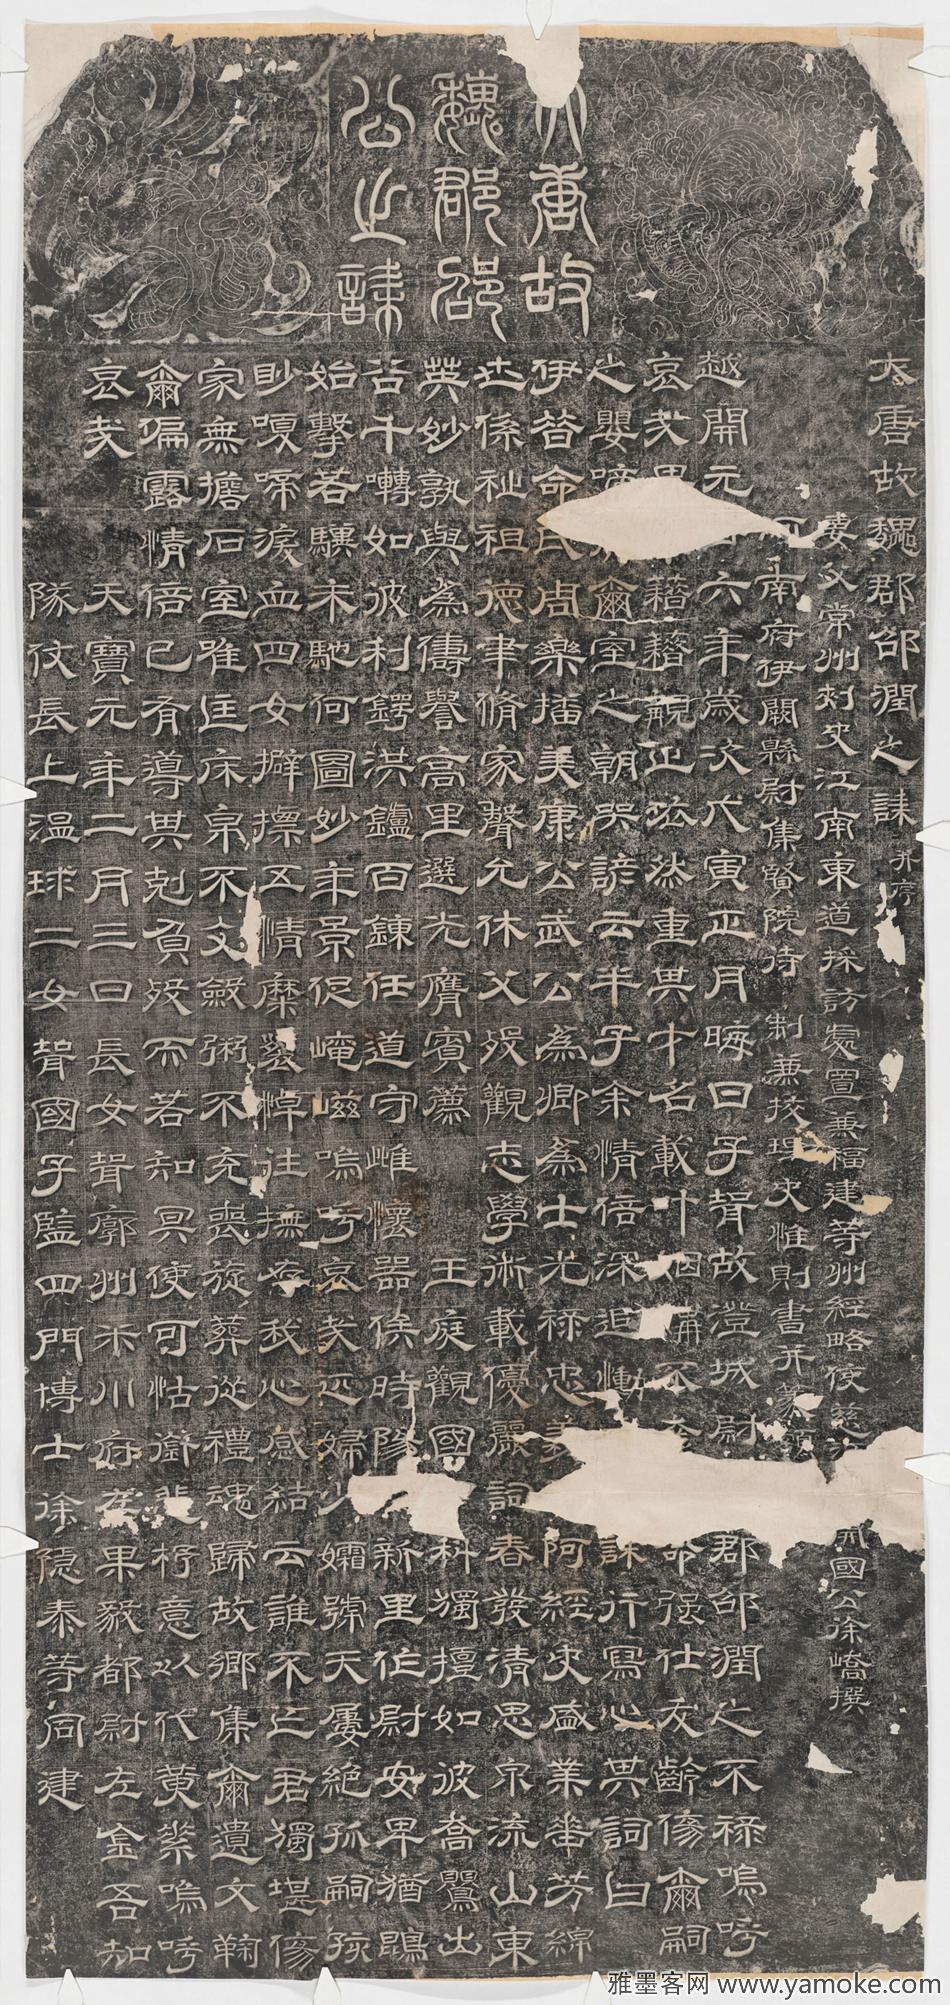 大唐故
魏郡邵
公之誄
大唐故魏郡邵潤之誄并序
妻父常州刺史江南東道採訪處置兼福建等州經略使慈開國公徐嶠撰
河南府伊闕縣尉集賢院待制兼校理史惟則書并篆額
越開元廿六年歲次戊寅正月晦日子聟故澄城尉郡邵潤之不祿嗚呼
哀哉藉覯止泫然重其才名載姻不命强仕友齡修爾嗣
之嬰啼爾室之朝哭諺云半子余情倍深追慟誄行寫心其詞曰
伊昔命氏周樂播美康公武公為卿為士光祿忠義阿經史盛業垂芳綿
也係祉祖德聿脩家聲允休父歿觀志學術載優麗詞春發清思泉流山東
英妙孰與為儔譽高里選光膺賓薦王庭觀國科獨擅如彼喬鶯出
谷千囀如彼利鍔洪鑪百鍊任道守雌懷器俟時降新里作尉安卑猶鶤
始擊若驥未馳何圖妙年景促崦嵫嗚呼哀哉匹婦少孀號天屢絕孤嗣孩
眇嗄啼淚血四女擗摽五情糜裂悼往撫存我心感結云誰不亡君獨堪傷
家無擔石室唯匡床帛不交斂粥不充喪旋葬從禮魂歸故鄉集爾遺文鞠
爾偏露情倍己有導其剋負歿而若知冥使可怙銜悲抒意以代黃嗚呼
哀哉
天寶元年二月三日長女聟廓州米川府左果毅都尉左金吾知
隊仗長上溫球二女聟國子監四門博士徐隱泰等同建
雅墨客网 www.yamoke.com